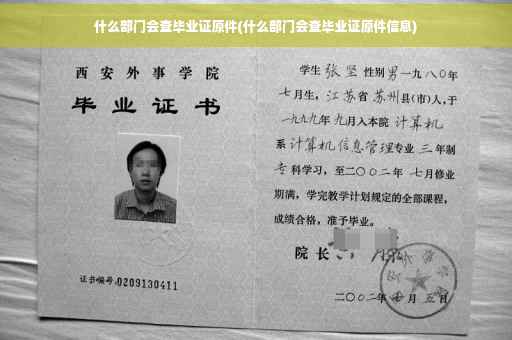 什么部门会查毕业证原件(什么部门会查毕业证原件信息)
西安外事学院
毕业证书
证书编号:0209130411
学生 张坚 性别 男 一九八〇年
七月生，江苏省苏州县(市)人,于
一九九九年 九月入本院 计算机
系 计算机信息管理专业 三 年制
专科学习，至二〇〇二年 七月修业
期满，学完教学计划规定的全部课程，
成绩合格，准予毕业。
院长
二〇〇二年 月 五 日